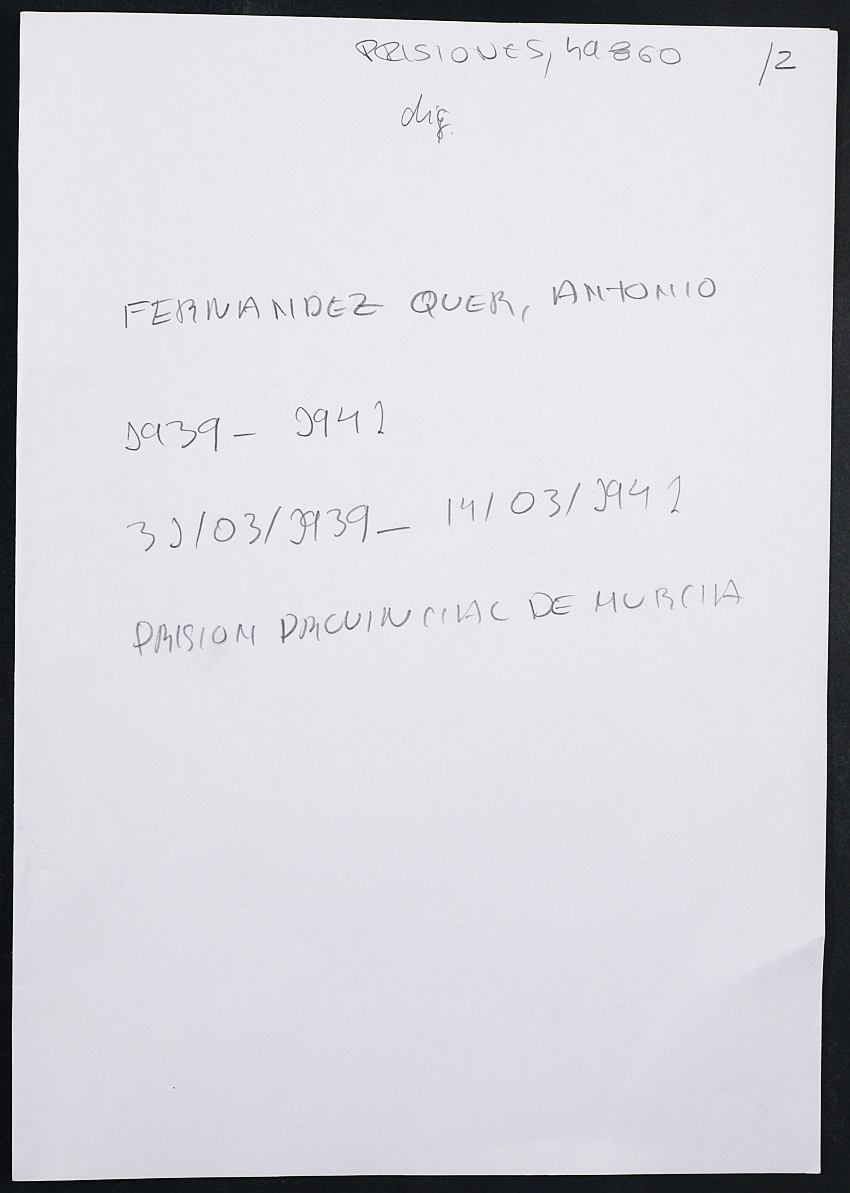 PRISIONES, 49860 /2
dig.
FERNANDEZ QUER, ANTONIO
1939 - 1941
31/03/1939 - 14/03/1941
PRISION PROVINCIAL DE MURCIA